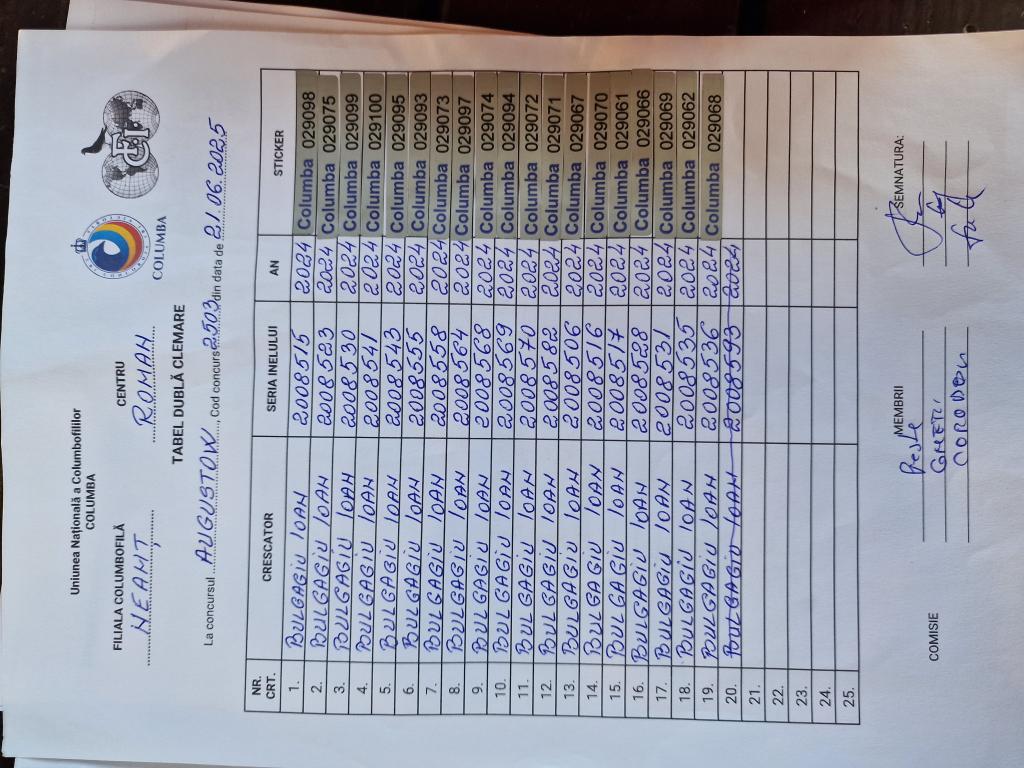 Uniunea Națională a Columbofililor
COLUMBA
FILIALA COLUMBOFILĂ CENTRU
NEAMȚ ROMAN
COLUMBA
TABEL DUBLĂ CLEMARE
La concursul AUGUSTOW, Cod concurs 2503 din data de 21.06.2025
NR. CRT. CRESCATOR SERIA INELULUI AN STICKER
1. BULGAGIU IOAN 2008515 2024 Columba 029098
2. BULGAGIU IOAN 2008523 2024 Columba 029075
3. BULGAGIU IOAN 2008530 2024 Columba 029099
4. BULGAGIU IOAN 2008541 2024 Columba 029100
5. BULGAGIU IOAN 2008543 2024 Columba 029095
6. BULGAGIU IOAN 2008555 2024 Columba 029093
7. BULGAGIU IOAN 2008558 2024 Columba 029073
8. BULGAGIU IOAN 2008564 2024 Columba 029097
9. BULGAGIU IOAN 2008568 2024 Columba 029074
10. BULGAGIU IOAN 2008569 2024 Columba 029094
11. BULGAGIU IOAN 2008570 2024 Columba 029072
12. BULGAGIU IOAN 2008582 2024 Columba 029071
13. BULGAGIU IOAN 2008506 2024 Columba 029067
14. BULGAGIU IOAN 2008516 2024 Columba 029070
15. BULGAGIU IOAN 2008517 2024 Columba 029061
16. BULGAGIU IOAN 2008528 2024 Columba 029066
17. BULGAGIU IOAN 2008531 2024 Columba 029069
18. BULGAGIU IOAN 2008535 2024 Columba 029062
19. BULGAGIU IOAN 2008536 2024 Columba 029068
20. BULGAGIU IOAN 2008593 2024
21.
22.
23.
24.
25.
COMISIE MEMBRII SEMNATURA: